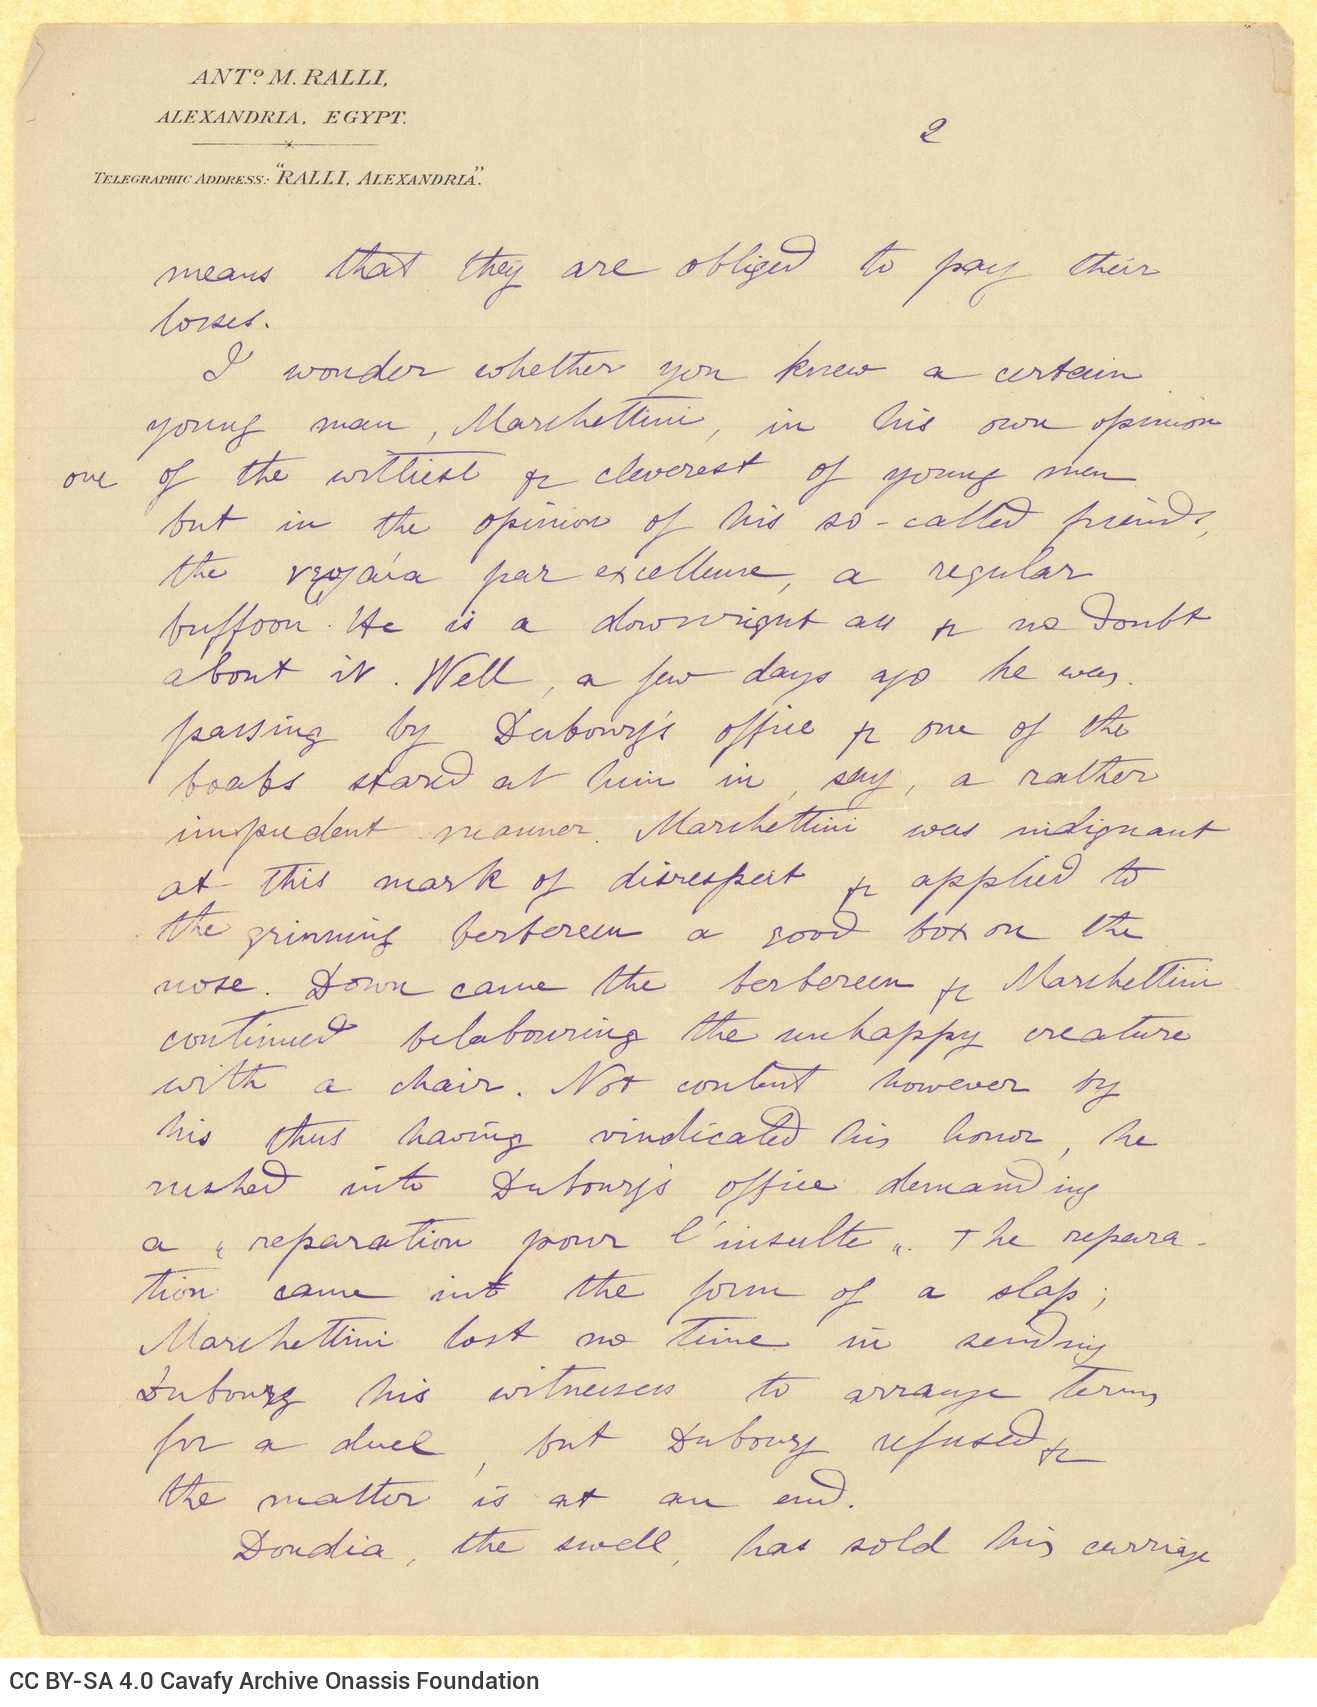 ANTº M. RALLI,
ALEXANDRIA, EGYPT.
TELEGRAPHIC ADDRESS: "RALLI, ALEXANDRIA".
2
means that they are obliged to pay their
losses.
I wonder whether you knew a certain
young man, Marchettini, in his own opinion
one of the wittiest & cleverest of young men
but in the opinion of his so-called friends,
the par excellence, a regular
buffoon. He is a downright ass & no doubt
about it. Well, a few days ago he was
passing by Dubourg's office & one of the
boabs stared at him in, say, a rather
impudent manner. Marchettini was indignant
at this mark of disrespect & applied to
the grinning berbereen a good box on the
nose. Down came the berbereen & Marchettini
continued belabouring the unhappy creature
with a chair. Not content however by
his thus having vindicated his honor, he
rushed into Dubourg's office demanding
a „reparation pour l'insulte„. The repara-
tion came in the form of a slap;
Marchettini lost no time in sending
Dubourg his witnesses to arrange terms
for a duel, but Dubourg refused &
the matter is at an end.
Doudia, the swell, has sold his carriage
CC BY-SA 4.0 Cavafy Archive Onassis Foundation